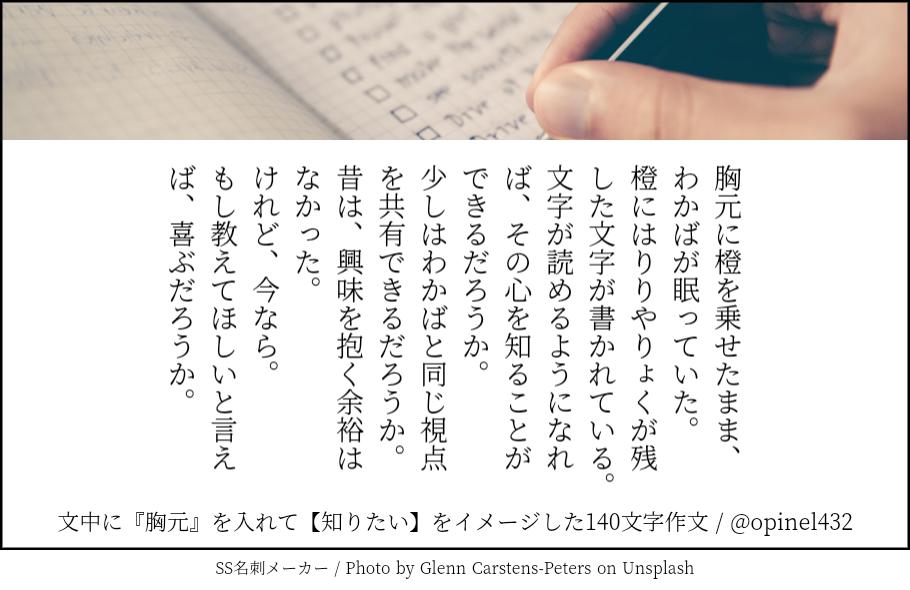 胸元に橙を乗せたまま、
わかばが眠っていた。
橙にはりりやりょくが残
した文字が書かれている。
文字が読めるようになれ
ば、その心を知ることが
できるだろうか。
少しはわかばと同じ視点
を共有できるだろうか。
昔は、興味を抱く余裕は
なかった。
けれど、今なら。
もし教えてほしいと言え
ば、喜ぶだろうか。
文中に『胸元』を入れて【知りたい】をイメージした140文字作文 / @opinel432
SS名刺メーカー / Photo by Glenn Carstens-Peters on Unsplash